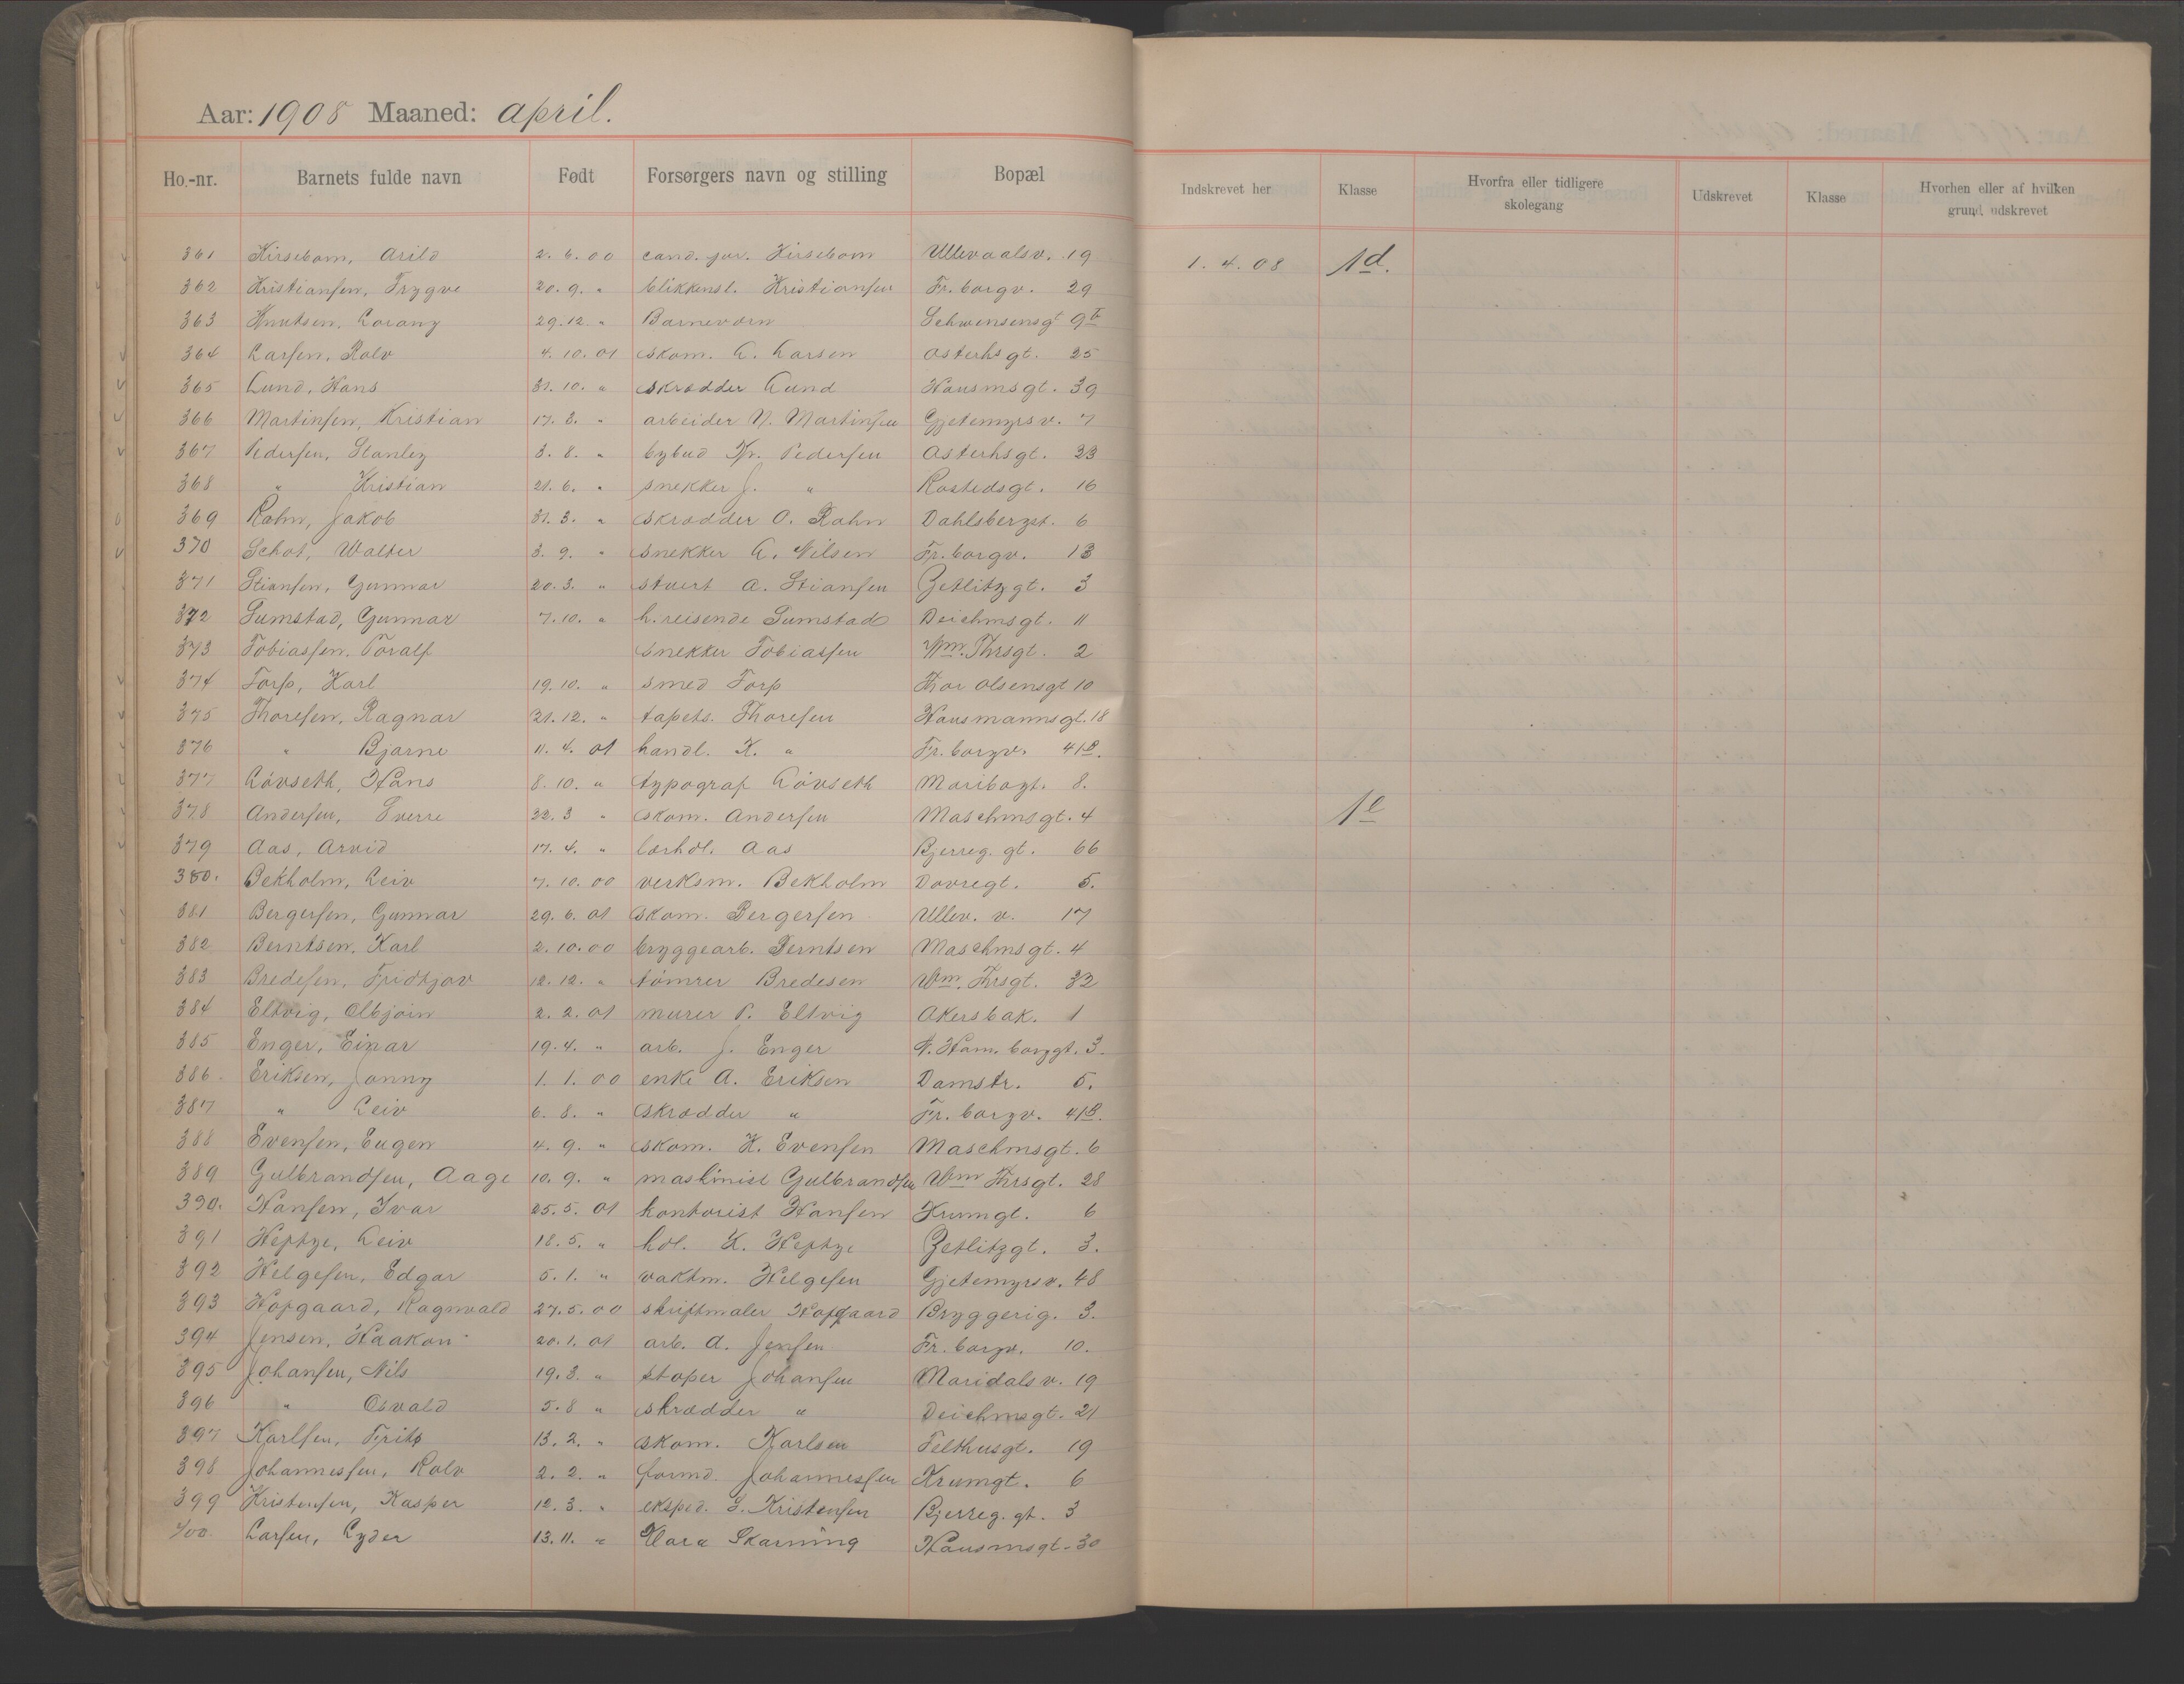 Aar: 1908 Maaned: april.
Ho.-nr. Barnets fulde navn Født Forsørgers navn og stilling Bopæl Indskrevet her Klasse Hvorfra eller tidligere skolegang Udskrevet Klasse Hvorhen eller af hvilken grund udskrevet
361 Kirsebom, Arild 2. 6. 00 cand. jur. Kirsebom Ullevaalsv. 19 1. 4. 08 1d.
362 Kristiansen, Trygve 20. 9. " blikkensl. Kristiansen Fr. borgv. 29
363 Knutsen, Lorang 29. 12. " Barneværn Schwensensgt 9b
364 Larsen, Rolv 4. 10. 01 skom. L. Larsen Osterhsgt. 25
365 Lund, Hans 31. 10. " skrædder Lund Hausmsgt. 39
366 Martinsen, Kristian 17. 8. " arbeider N. Martinsen Gjetemyrsv. 7
367 Pedersen, Stanley 3. 8. " bybud Kr. Pedersen Osterhsgt. 23
368 " Kristian 21. 6. " snekker J. " Rostedsgt. 16
369 Rahn, Jakob 31. 3. " skrædder O. Rahn Dahlsbergst. 6
370 Schot, Walter 3. 9. " snekker L. Nilsen Fr. borgv. 13
371 Stiansen, Gunnar 20. 3. " stuert A. Stiansen Zetlitzgt. 3
372 Sumstad, Gunnar 7. 10. " h. reisende Sumstad Deichmsgt. 11
373 Tobiassen, Toralf snekker Tobiassen Wm. Thrsgt. 2
374 Torp, Karl 19. 10. " smed Torp Thor Olsensgt 10
375 Thoresen, Ragnar 21. 12. " tapets. Thoresen Hausmannsgt. 18
376 " Bjarne 11. 4. 01 handl. K. " Fr. borgv. 41B.
377 Lövseth, Hans 8. 10. " typograf Lövseth Maribogt. 8.
378 Andersen, Sverre 22. 3 " skom. Andersen Maschmsgt. 4 1e
379 Aas, Arvid 17. 4. " lærhdl. Aas Bjerreg. gt. 66
380. Bekholm, Leiv 7. 10. 00 verksm. Bekholm Dovregt. 5.
381 Bergersen, Gunnar 29. 6. 01 skom. Bergersen Ullev. v. 17
382 Berntsen, Karl 2. 10. 00 bryggearb. Berntsen Maschmsgt. 4
383 Bredesen, Fridtjov 12. 12. " tömrer Bredesen Wm. Thrsgt. 32
384 Eltvig, Olbjörn 2. 2. 01 murer P. Eltvig Akersbak. 1
385 Enger, Einar 19. 4. " arb. J. Enger N. Ham. borggt. 3.
386 Eriksen, Jonny 1. 1. 00 enke A. Eriksen Damstr. 5.
387 " Leiv 6. 8. " skrædder " Fr. borgv. 41B.
388 Evensen, Eugen 4. 9. " skom. K. Evensen Maschmsgt. 6
389 Gulbrandsen, Aage 10. 9. " maskinist Gulbrandsen Wm Thrsgt. 28
390. Hansen, Ivar 25. 5. 01 kontorist Hansen Krumgt. 6
391 Heftye, Leiv 18. 5. " hdl. K. Heftye Zetlitzgt. 3.
392 Helgesen, Edgar 5. 1. " vaktm. Helgesen Gjetemyrsv. 48
393 Hofgaard, Ragnvald 27. 5. 00 skriftmaler Hofgaard Bryggerig. 3.
394 Jensen, Haakon 20. 1. 01 arb. A. Jensen Fr. borgv. 10.
395 Johansen, Nils 19. 3. " støper Johansen Maridalsv. 19
396 " Osvald 5. 8 " skrædder " Deichmsgt. 21
397 Karlsen, Frits 13. 2. " skom. Karlsen Telthusgt. 19
398 Johannessen, Rolv 2. 2. " formd. Johannessen Krumgt. 6
399 Kristensen, Kasper 12. 3. " eksped. S. Kristensen Bjerreg. gt. 3
400. Larsen, Lyder 13. 11. " Klara Skarning Hausmsgt. 30